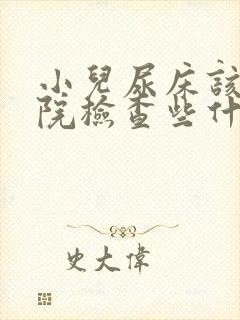 小兒尿床該
院檢查些什
史大偉